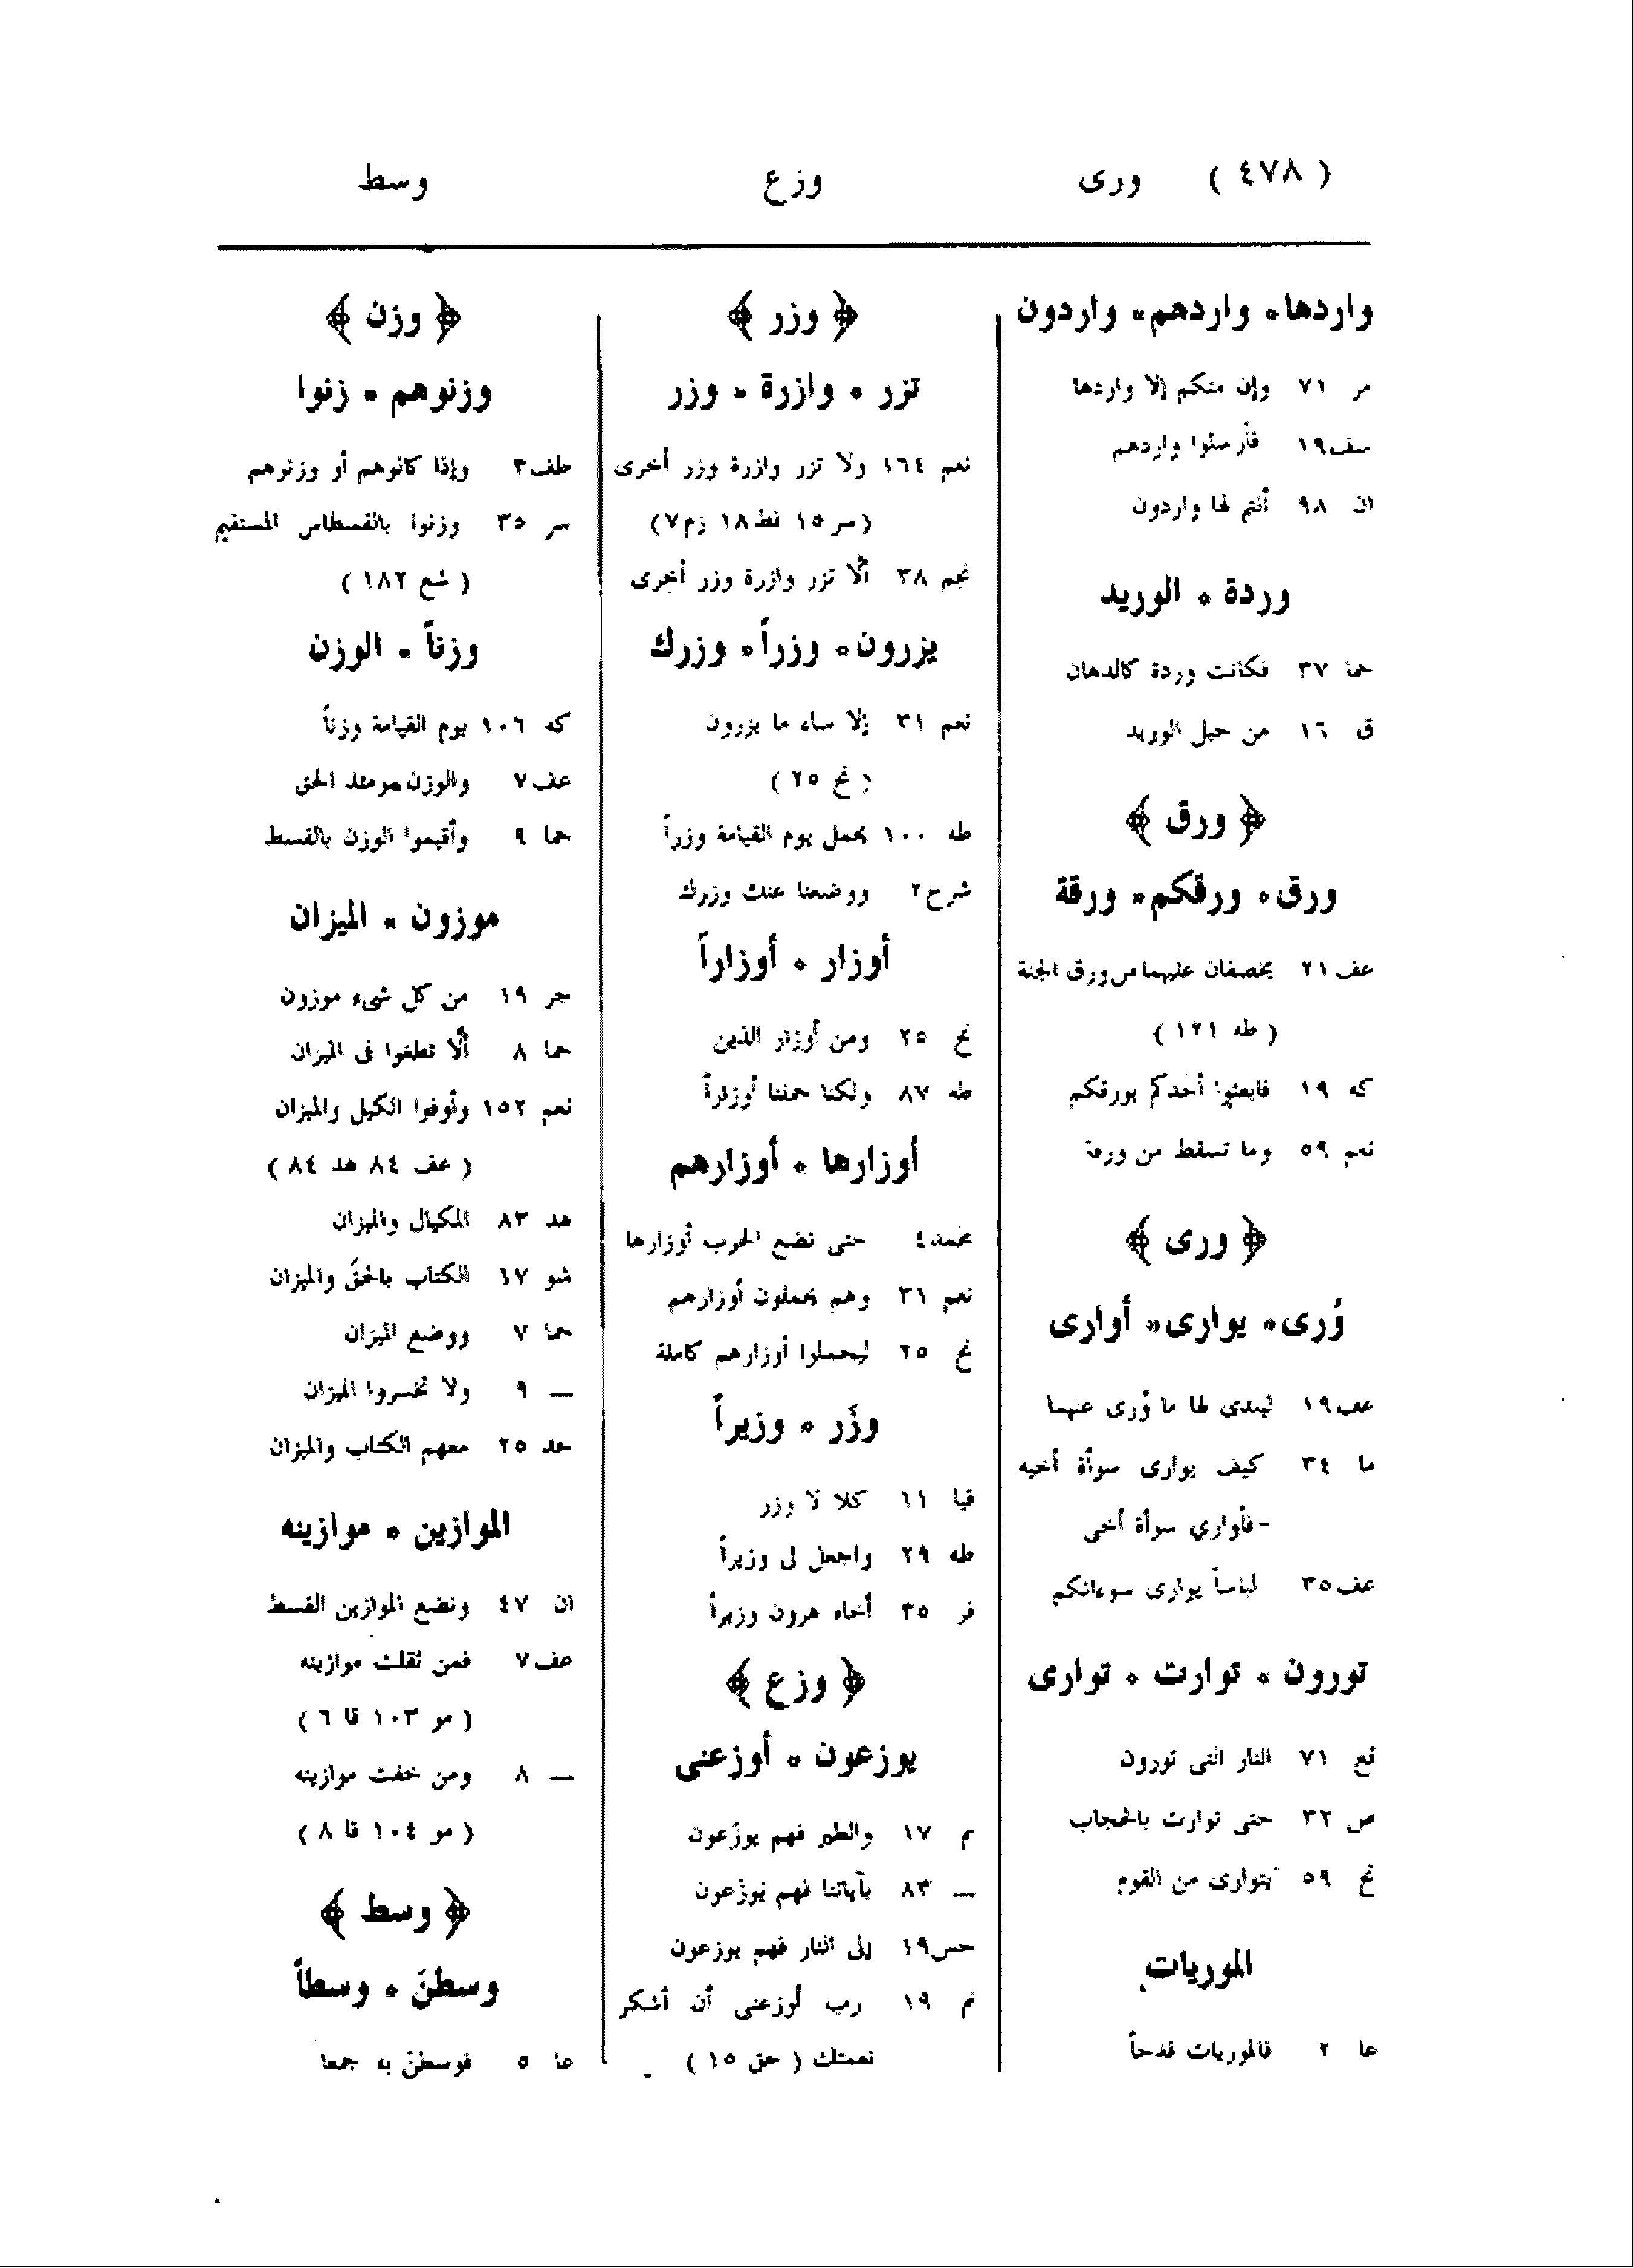 ( ٤٧٨ ) ورى وزع وسط
واردها * واردهم * واردون
مر ٧١ وإن منكم إلا واردها
سف ١٩ فأرسلوا واردهم
ان ٩٨ أنتم لها واردون
وردة * الوريد
حما ٣٧ فكانت وردة كالدهان
ق ١٦ من حبل الوريد
﴿ ورق ﴾
ورق * ورقكم * ورقة
عف ٢١ يخصفان عليهما من ورق الجنة
( طه ١٢١ )
كه ١٩ فابعثوا أحدكم بورقكم
نعم ٥٩ وما تسقط من ورقة
﴿ ورى ﴾
وُرى * يوارى * أوارى
عف ١٩ ليبدى لها ما وُرى عنهما
ما ٣٤ كيف يوارى سوأة أخيه
- فأوارى سوأة أخى
عف ٣٥ لباساً يوارى سوءاتكم
تورون * توارت * توارى
قع ٧١ النار التى تورون
ص ٣٢ حتى توارت بالحجاب
نح ٥٩ يتوارى من القوم
الموريات
عا ٢ فالموريات قدحاً
﴿ وزر ﴾
تزر * وازرة * وزر
نعم ١٦٤ ولا تزر وازرة وزر أخرى
( سر ١٥ فط ١٨ زم ٧ )
نجم ٣٨ ألّا تزر وازرة وزر أخرى
يزرون * وزراً * وزرك
نعم ٣١ إلا ساء ما يزرون
( نح ٢٥ )
طه ١٠٠ يحمل يوم القيامة وزراً
شرح ٢ ووضعنا عنك وزرك
أوزار * أوزاراً
نح ٢٥ ومن أوزار الذين
طه ٨٧ ولكنا حملنا أوزاراً
أوزارها * أوزارهم
محمد ٤ حتى تضع الحرب أوزارها
نعم ٣١ وهم يحملون أوزارهم
نح ٢٥ ليحملوا أوزارهم كاملة
وزَر * وزيراً
قيا ١١ كلا لا وزر
طه ٢٩ واجعل لى وزيراً
فر ٣٥ أخاه هرون وزيراً
﴿ وزع ﴾
يوزعون * أوزعنى
نم ١٧ والطير فهم يوزعون
— ٨٣ بآياتنا فهم يوزعون
حس ١٩ إلى النار فهم يوزعون
نم ١٩ رب أوزعنى أن أشكر
نعمتك ( حق ١٥ )
﴿ وزن ﴾
وزنوهم * زنوا
طف ٣ وإذا كالوهم أو وزنوهم
سر ٣٥ وزنوا بالقسطاس المستقيم
( شع ١٨٢ )
وزناً * الوزن
كه ١٠٦ يوم القيامة وزناً
عف ٧ والوزن يومئذ الحق
حما ٩ وأقيموا الوزن بالقسط
موزون * الميزان
جر ١٩ من كل شىء موزون
حما ٨ ألّا تطغوا فى الميزان
نعم ١٥٢ وأوفوا الكيل والميزان
( عف ٨٤ هد ٨٤ )
هد ٨٣ المكيال والميزان
شو ١٧ الكتاب بالحقّ والميزان
حما ٧ ووضع الميزان
— ٩ ولا تخسروا الميزان
حد ٢٥ معهم الكتاب والميزان
الموازين * موازينه
ان ٤٧ ونضع الموازين القسط
عف ٧ فمن ثقلت موازينه
( مو ١٠٣ قا ٦ )
— ٨ ومن خفت موازينه
( مو ١٠٤ قا ٨ )
﴿ وسط ﴾
وسطنَ * وسطاً
عا ٥ فوسطنَ به جمعا